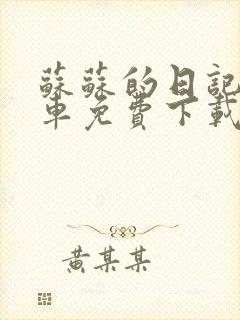 蘇蘇的日記
車免費下載
黃某某